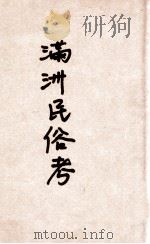 研狗
滿洲民俗考
mtoou.info